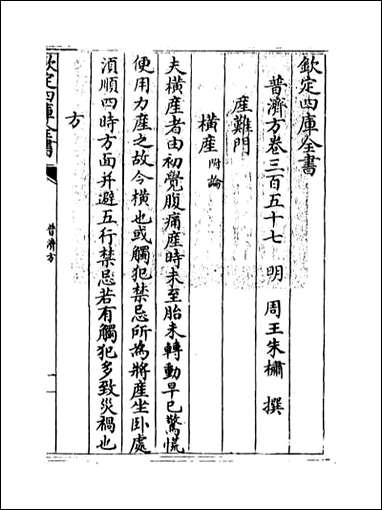 欽定四庫全書
普濟方卷三百五十七 明 周王朱橚 撰
產難門
橫產附論
夫橫產者由初覺腹痛產時未至胎未轉動早已驚慌
便用力產之故令橫也或觸犯禁忌所為將產坐臥處
須順四時方面并避五行禁忌若有觸犯多致災禍也
方
欽定四庫全書
普濟方
一